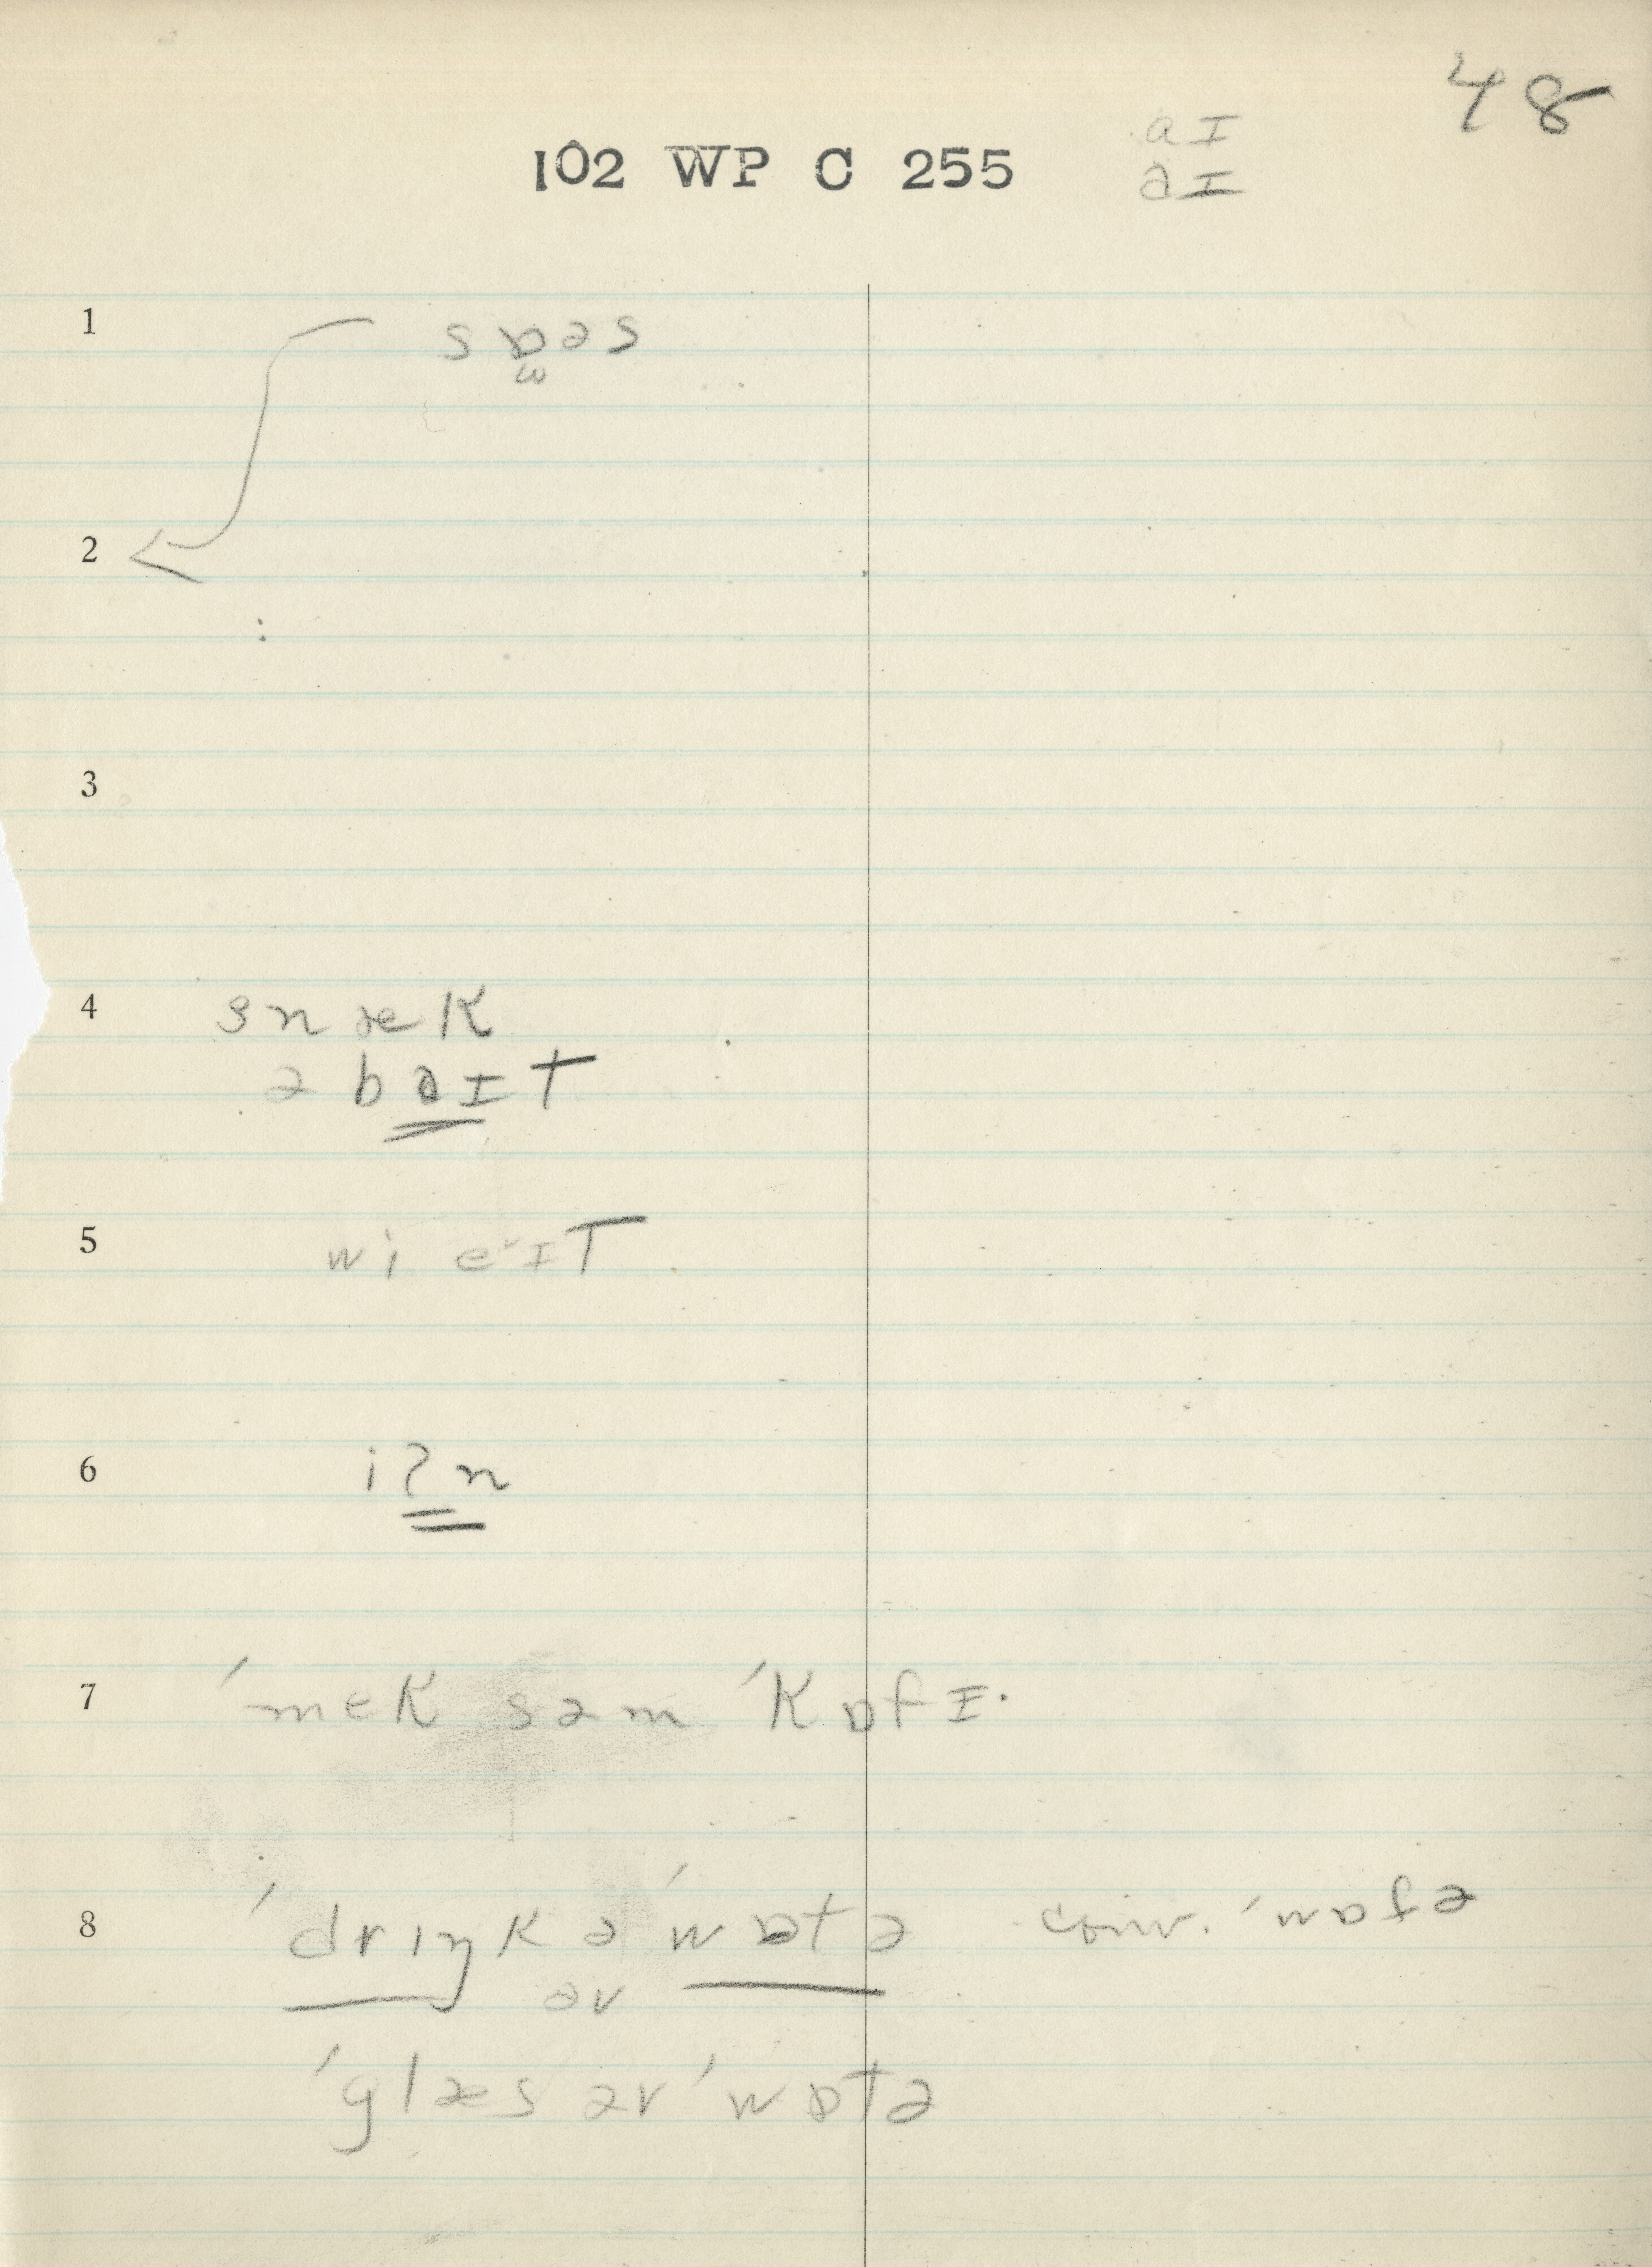 48
aɪ
102 WP C 255
əɪ
1 sɒəs
ω
2
:
3
4 snæk
ə bəɪt
5 wi e˅ɪt
6 iʔn
7 ˈmek səm ˈkɒfɪ·
8 ˈdrɪŋk ə ˈwɒtə conv. ˈwɒtə
əv
ˈglæs əv ˈwɒtə